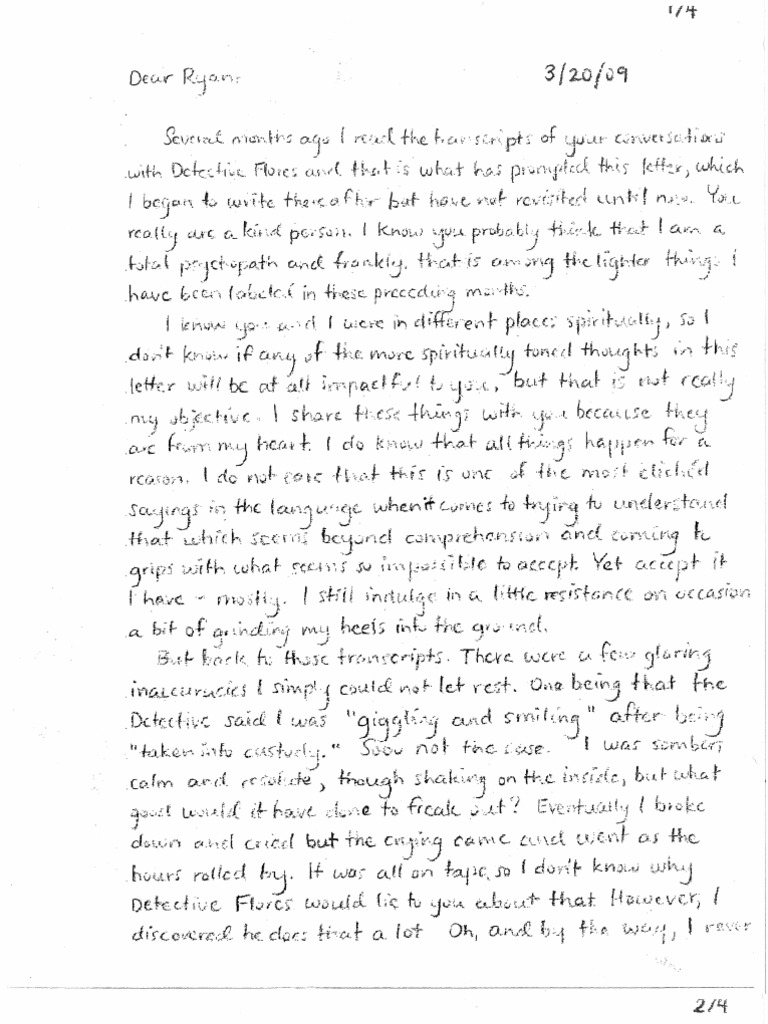 1/4
Dear Ryan:
3/20/09
Several months ago I read the transcripts of your conversations
with Detective Flores and that is what has prompted this letter, which
I began to write thereafter but have not revisited until now. You
really are a kind person. I know you probably think that I am a
total psychopath and frankly, that is among the lighter things I
have been labeled in these preceding months.
I know you and I were in different places spiritually, so I
don't know if any of the more spiritually toned thoughts in this
letter will be at all impactful to you, but that is not really
my objective. I share these things with you because they
are from my heart. I do know that all things happen for a
reason. I do not care that this is one of the most clichéd
sayings in the language when it comes to trying to understand
that which seems beyond comprehension and coming to
grips with what seems so impossible to accept. Yet accept it
I have - mostly. I still indulge in a little resistance on occasion
a bit of grinding my heels into the ground.
But back to those transcripts. There were a few glaring
inaccuracies I simply could not let rest. One being that the
Detective said I was "giggling and smiling" after being
"taken into custody." Sooo not the case. I was somber,
calm and resolute, though shaking on the inside, but what
good would it have done to freak out? Eventually I broke
down and cried but the crying came and went as the
hours rolled by. It was all on tape, so I don't know why
Detective Flores would lie to you about that. However, I
discovered he does that a lot. Oh, and by the way, I never
2/4